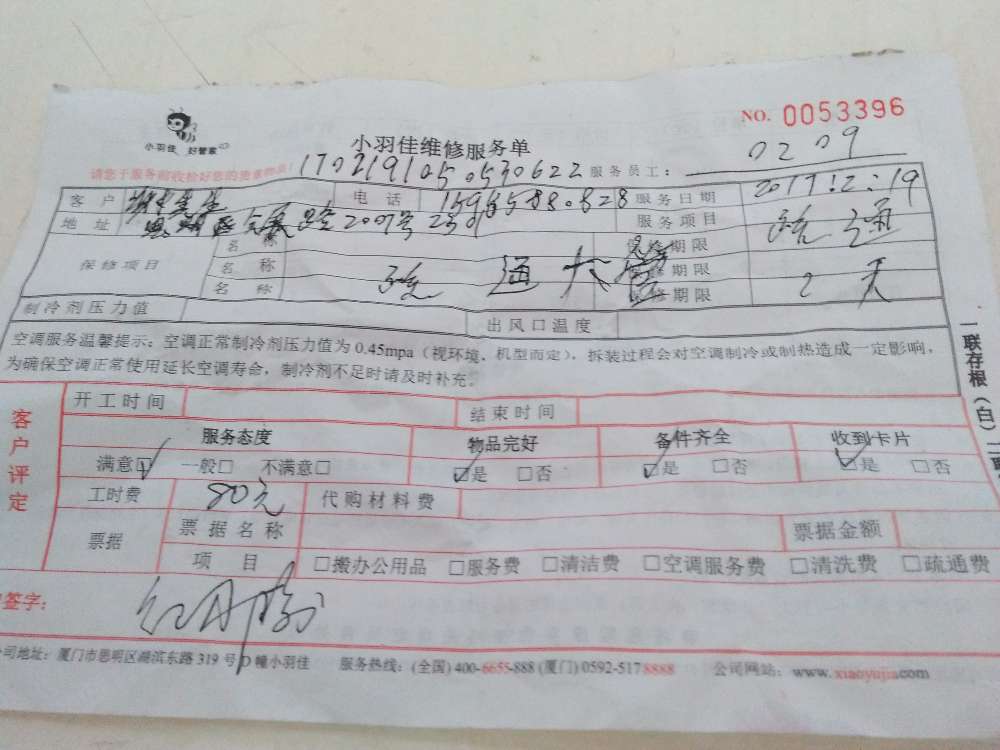 小羽佳 好管家
NO. 0053396
小羽佳维修服务单
1702191050530622 服务员工： 0209
请您于服务前收检好您的贵重物品！
客 户 电 话 服务日期
地 址 2009号 服务项目 疏通
保修项目 名 称 保修期限
名 称 疏 通 大 保修期限
名 称 保修期限 2 天
制冷剂压力值 出风口温度
空调服务温馨提示：空调正常制冷剂压力值为 0.45mpa（视环境、机型而定），拆装过程会对空调制冷或制热造成一定影响，
为确保空调正常使用延长空调寿命，制冷剂不足时请及时补充。
一联存根（白）二联
客户评定
开工时间 结束时间
服务态度 物品完好 备件齐全 收到卡片
满意☑ 一般□ 不满意□ ☑是 □否 ☑是 □否 ☑是 □否
工时费 80元 代购材料费
票据 票据名称 票据金额
项 目 □搬办公用品 □服务费 □清洁费 □空调服务费 □清洗费 □疏通费
签字：
司地址：厦门市思明区湖滨东路 319 号 D 幢小羽佳 服务热线：(全国) 400-6655-888 (厦门) 0592-5178888 公司网站：www.xiaoyujia.com